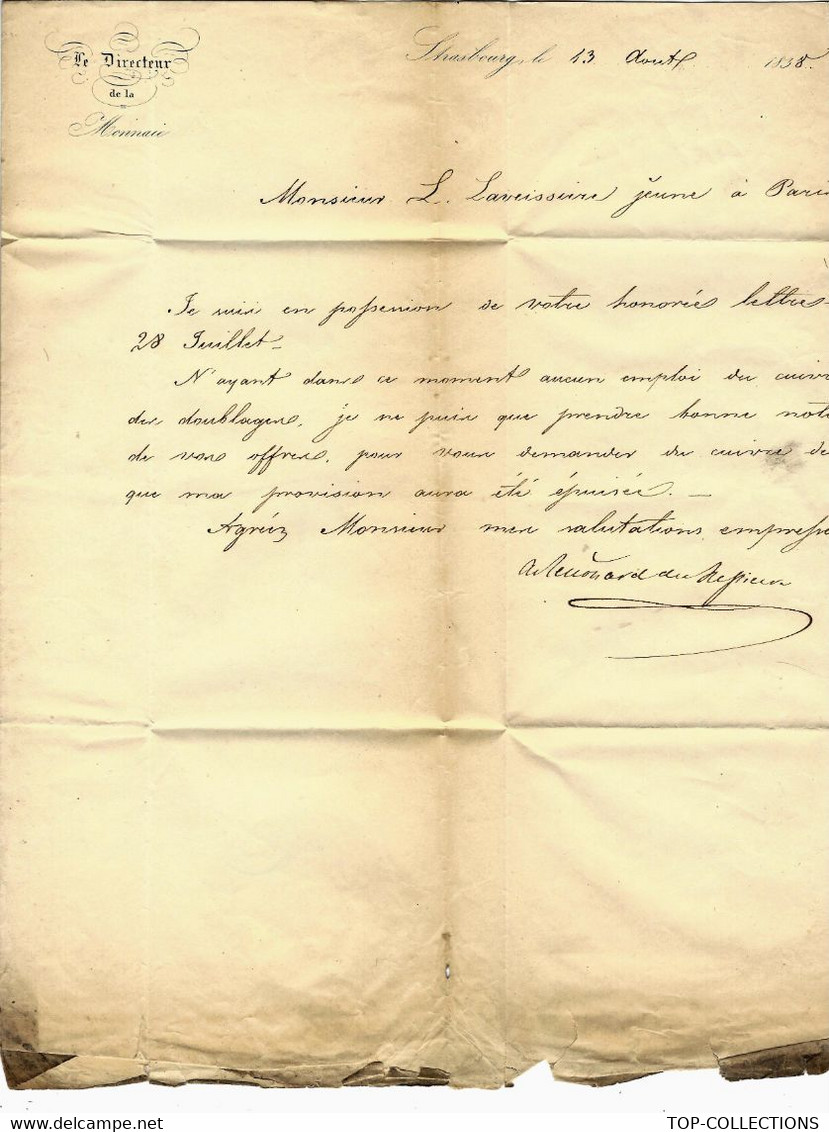 Le Directeur
de la
Monnaie
Strasbourg, le 13 Aout 1838.
Monsieur L. Laveissiere jeune à Paris
Je suis en possession de votre honorée lettre
28 Juillet
N'ayant dans ce moment aucun emploi du cuivre
des doublages, je ne puis que prendre bonne note
de vos offres, pour vous demander du cuivre dès
que ma provision aura été épuisée. _
Agréez Monsieur mes salutations empressé
du
TOP-COLLECTIONS